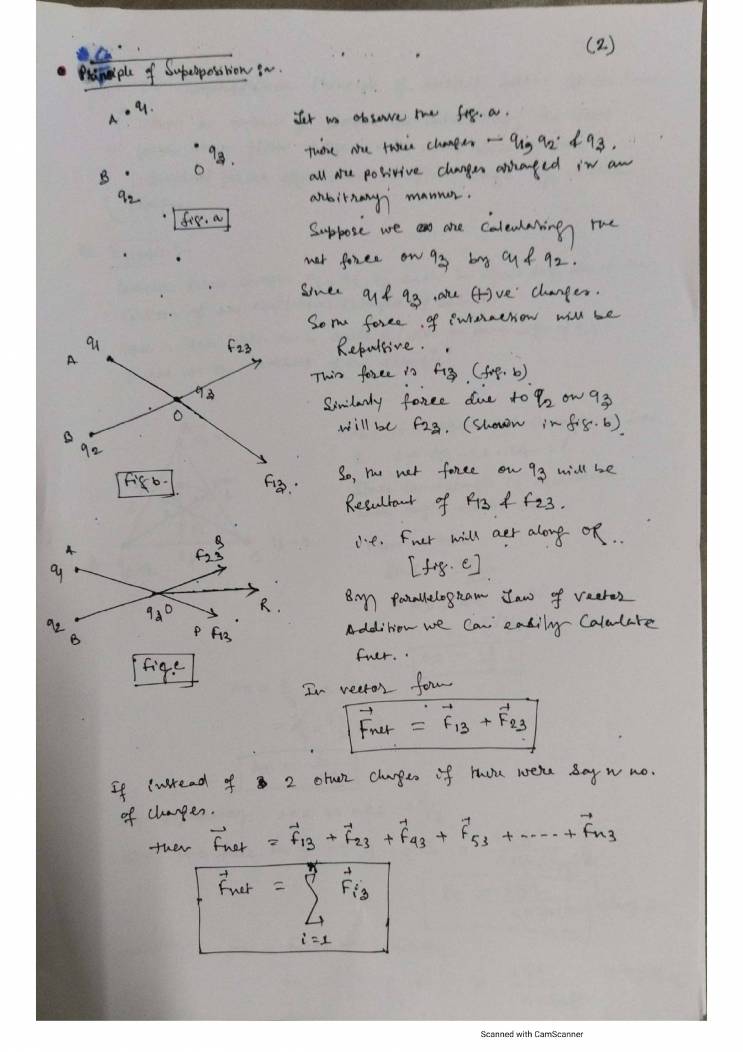 (2)
• Principle of Superposition :~
A • q1
Let us observe the fig. a.
There are three charges – q1, q2 & q3.
• q3
O
B •
q2
all are positive charges arranged in an
arbitrary manner.
fig. a
Suppose we are calculating the
net force on q3 by q1 & q2.
Since q1 & q3 are (+)ve charges.
So the force of interaction will be
Repulsive.
q1
A
F23
q3
O
B
q2
F13.
fig b.
This force is F13 (fig. b)
Similarly force due to q2 on q3
will be F23. (Shown in fig. b)
So, the net force on q3 will be
Resultant of F13 & F23.
i.e. Fnet will act along OR..
[fig. c]
A
q1
F23
q2
B
q3 O
R.
P F13
fig. c
By Parallelogram Law of vector
Addition we can easily calculate
Fnet..
In vector form
F⃗net = F⃗13 + F⃗23
If instead of 2 other charges if there were say n no.
of charges.
then F⃗net = F⃗13 + F⃗23 + F⃗43 + F⃗53 + ----- + F⃗n3
F⃗net = n∑i=1 F⃗i3
Scanned with CamScanner